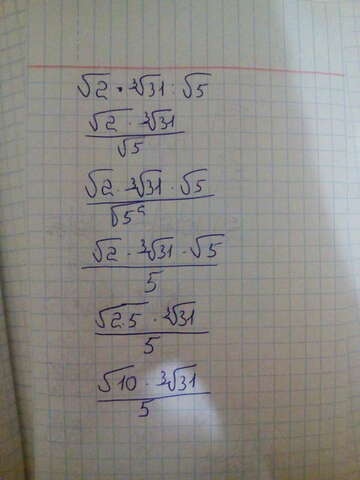 √2 · ∛31 : √5
√2 · ∛31 / √5
√2 · ∛31 · √5 / √5²
√2 · ∛31 · √5 / 5
√2·5 · ∛31 / 5
√10 · ∛31 / 5